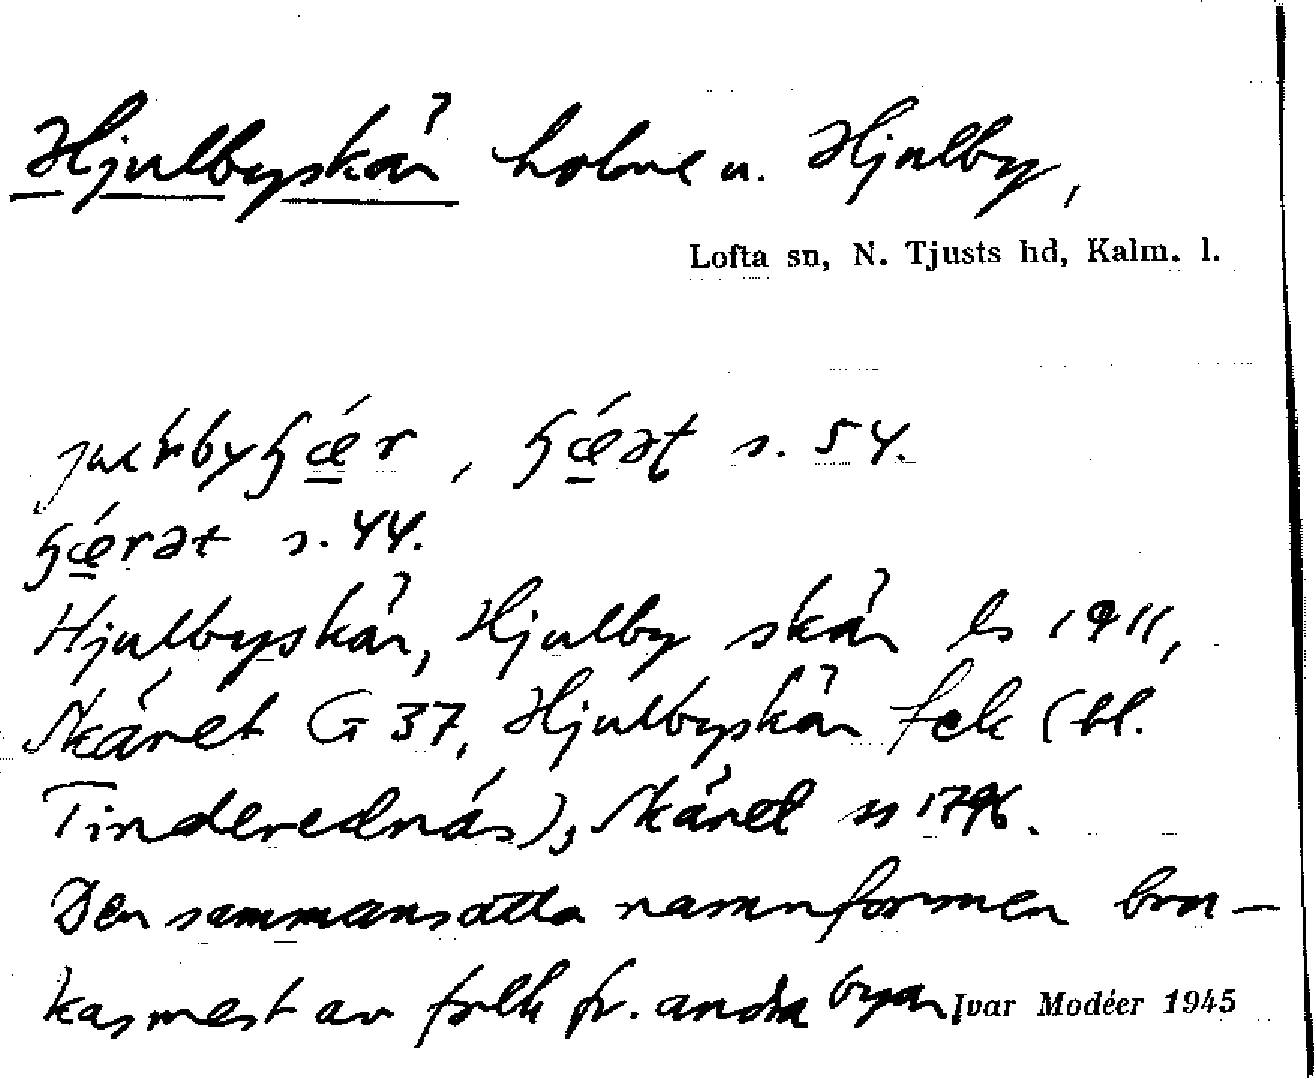 Hjulbyskär holme u. Hjulby,
Lofta sn, N. Tjusts hd, Kalm. l.
s. 54.
s. 44.
Hjulbyskär, Hjulby skär ls 1911,
Skäret G 37, Hjulbyskär fek (bl.
Tinderednäs), Skäret ss 1796.
Den sammansatta namnformen bru-
kas mest av folk fr. andra byar
Ivar Modéer 1945